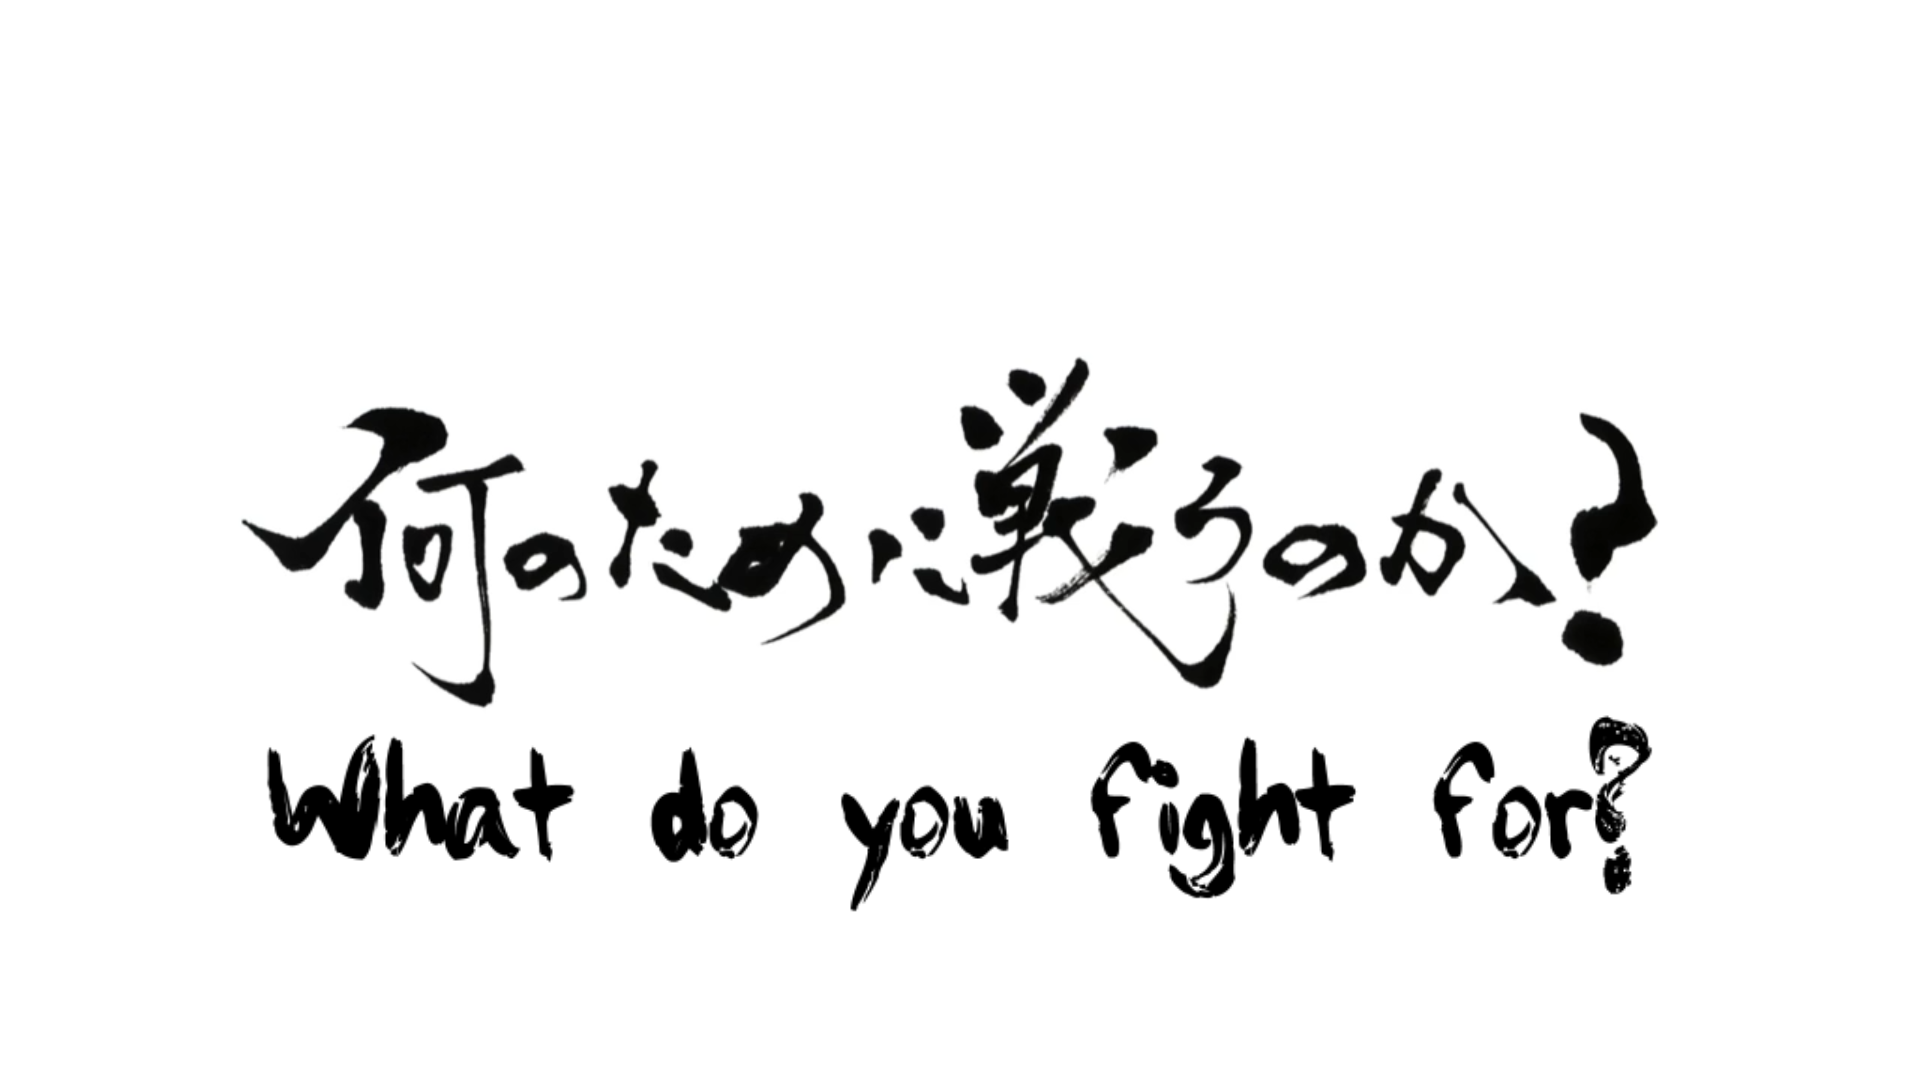 何のために戦うのか?
What do you fight for?